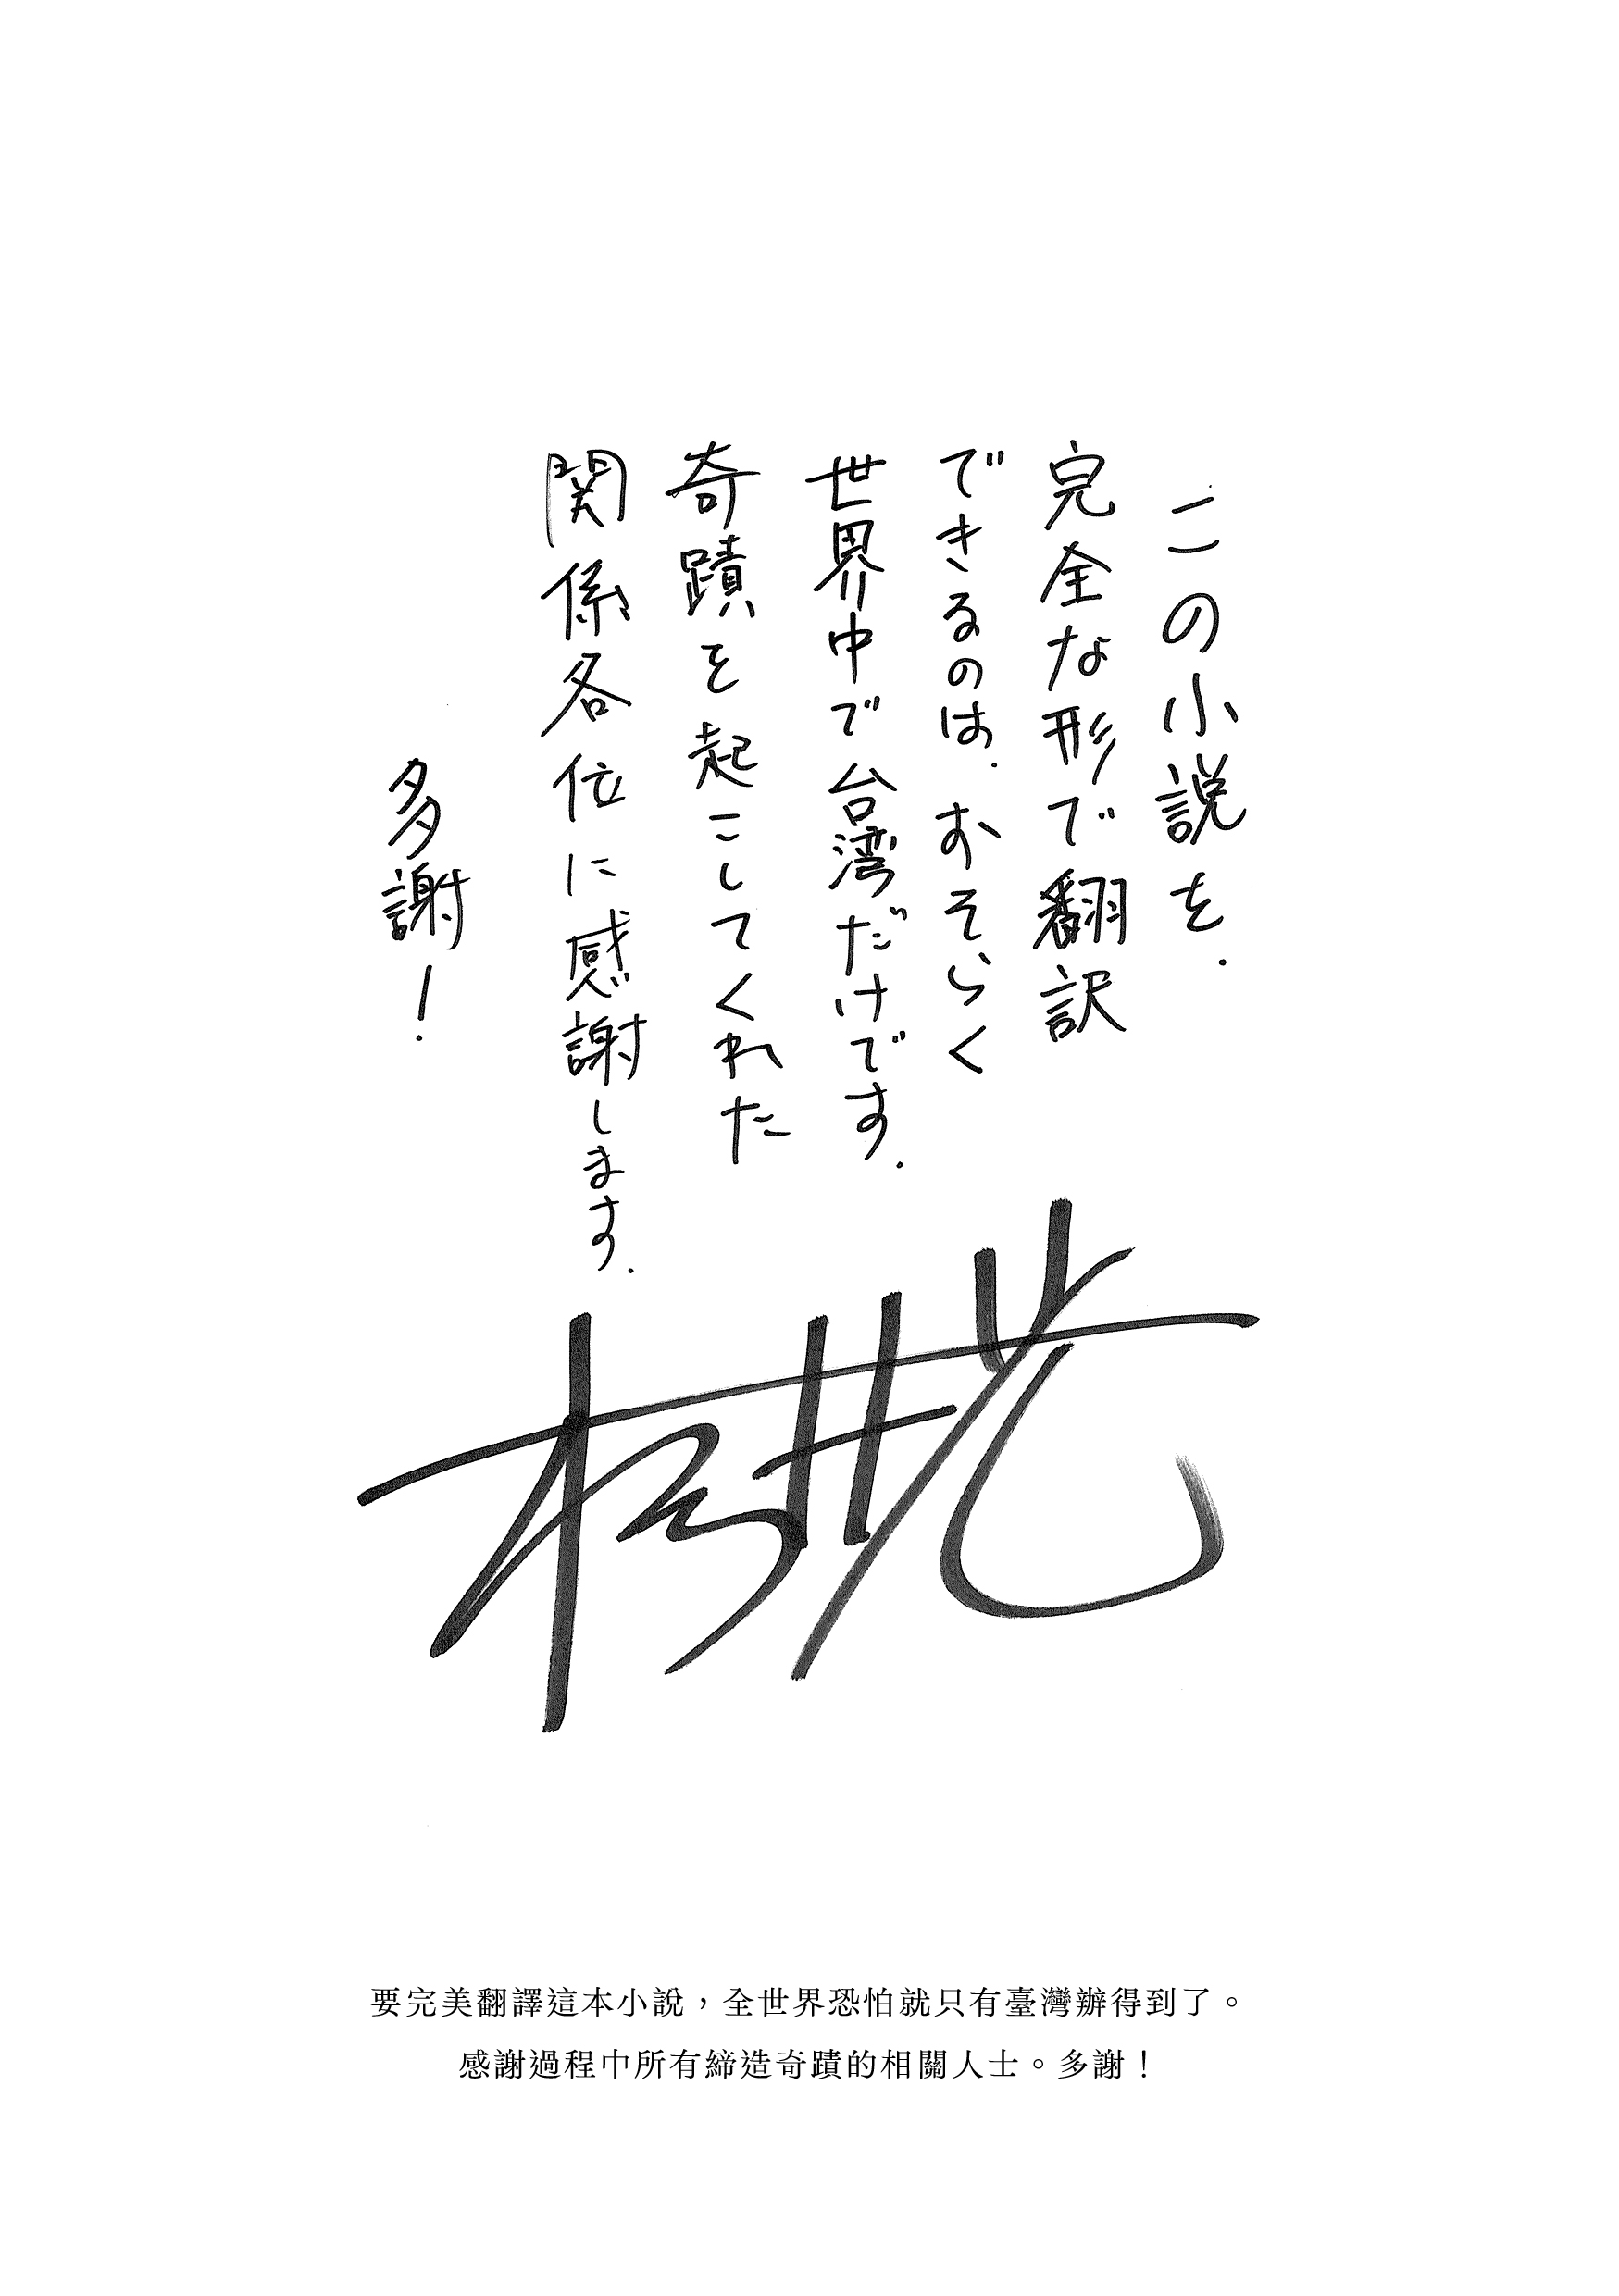 この小説を.
完全な形で翻訳
できるのは.おそらく
世界中で台湾だけです.
奇蹟を起こしてくれた
関係各位に感謝します.
多謝!
要完美翻譯這本小說，全世界恐怕就只有臺灣辦得到了。
感謝過程中所有締造奇蹟的相關人士。多謝！